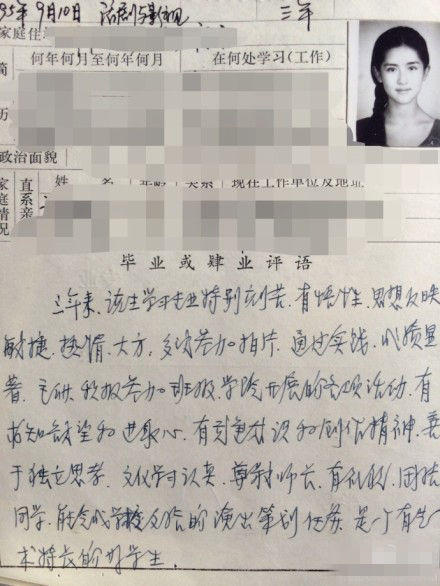 95年9月10日 话剧与影视 三年
家庭住
何年何月至何年何月 在何处学习(工作)
简
历
政治面貌
家庭情况 直系亲 姓 名 年龄 关系 现在工作单位及地址
毕业或肄业评语
三年来,该生学习专业特别刻苦,有悟性,思想反映
敏捷,热情,大方,多次参加拍片,通过实践,成质量
著,主动,积极参加班级,学院开展的各项活动,有
求知欲望和进取心,有刻意意识和创作精神,善
于独立思考,文化学习认真,尊敬师长,有礼貌,团结
同学,能完成学校交给的演出策划任务,是一个有艺
术特长的好学生.